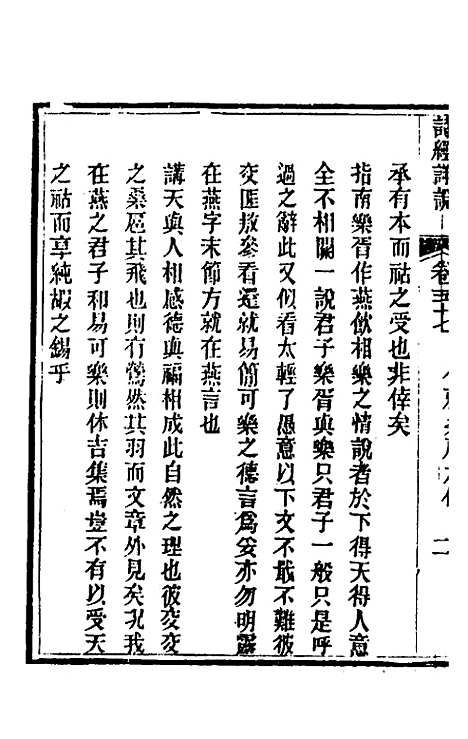 詩經詳說
卷五十七
二
承有本而祜之受也非倖矣
指南樂胥作燕飲相樂之情說者於下得天得人意
全不相關一說君子樂胥與樂只君子一般只是呼
過之辭此又似看太輕了愚意以下文不戢不難彼
交匪敖參看還就易簡可樂之德言為妥亦勿明露
在燕字末節方就在燕言也
講天與人相感德與福相成此自然之理也彼交交
之桑扈其飛也則有鶯然其羽而文章外見矣況我
在燕之君子和易可樂則休吉集焉豈不有以受天
之祜而享純嘏之錫乎